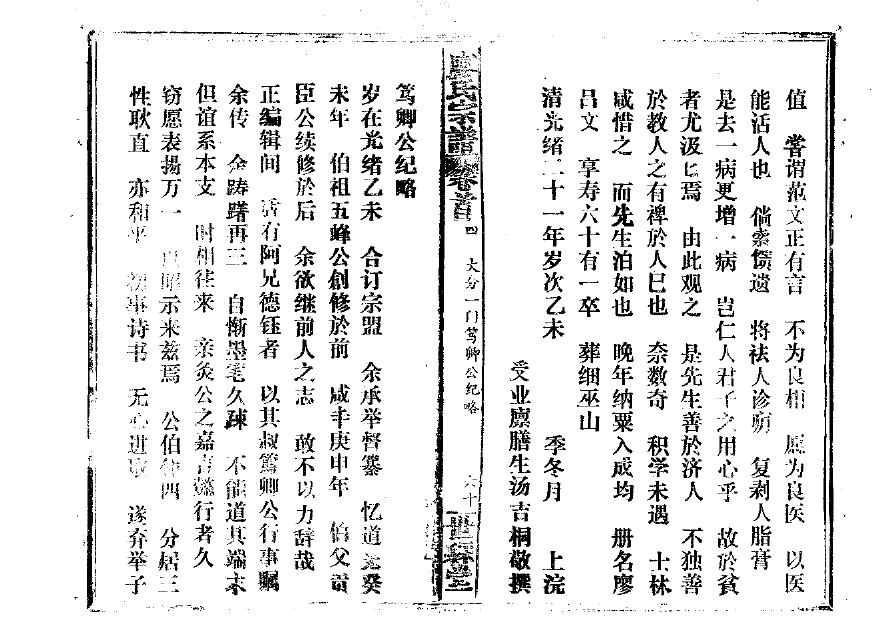 值 尝谓范文正有言 不为良相 愿为良医 以医
能活人也 倘索馈遗 将祛人诊 复剥人脂膏
是去一病更增一病 岂仁人君子之用心乎 故於贫
者尤汲匕焉 由此观之 是先生善於济人 不独善
於教人之有裨於人巳也 奈数奇 积学未遇 士林
咸惜之 而先生泊如也 晚年纳粟入成均 册名廖
吕文 享寿六十有一卒 葬细巫山
清光绪二十一年岁次乙未 季冬月 上浣
受业廪膳生汤吉桐敬撰
氏宗谱 卷首 四 大分一门笃卿公纪略 六十
笃卿公纪略
岁在光绪乙未 合订宗盟 余承举督纂 忆道光癸
未年 伯祖五峰公创修於前 咸丰庚申年 伯父
臣公续修於后 余欲继前人之志 敢不以力辞哉
正编辑间 适有阿兄德钰者 以其叔笃卿公行事瞩
余传 余踌躇再三 自惭墨笔久疎 不能道其端末
但谊系本支 时相往来 亲炙公之嘉言懿行者久
窃愿表揚万一 昭示来兹焉 公伯仲四 分居三
性耿直 亦和平 初事诗书 无心进取 遂弃举子